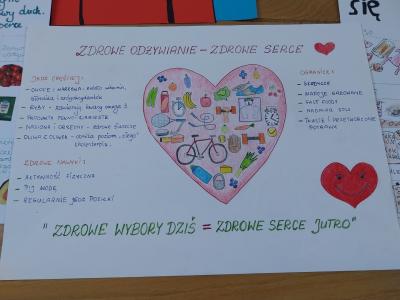 się
ZDROWE ODŻYWIANIE – ZDROWE SERCE
JEDZ CZĘŚCIEJ:
- OWOCE i WARZYWA - źródło witamin,
błonnika i antyoksydantów
- RYBY - zawierają kwasy omega 3
- PRODUKTY PEŁNO ZIARNISTE
- NASIONA i ORZECHY - zdrowe tłuszcze
- OLIWA Z OLIWEK - obniża poziom „złego”
cholesterolu
ZDROWE NAWYKI:
- AKTYWNOŚĆ FIZYCZNA
- PIJ WODĘ
- REGULARNIE JEDZ POSIŁKI
OGRANICZ:
- SŁODYCZE
- NAPOJE GAZOWANE
- FAST FOODY
- NADMIAR SOLI
- TŁUSTE i PRZETWORZONE
POTRAWY
"ZDROWE WYBORY DZIŚ = ZDROWE SERCE JUTRO"